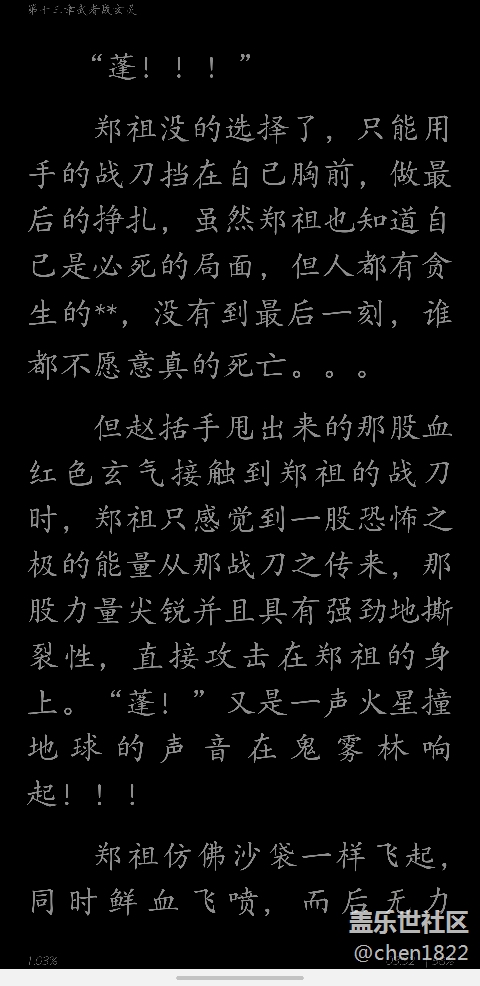 第十三章武者战玄灵
“蓬！！！”
郑祖没的选择了，只能用
手的战刀挡在自己胸前，做最
后的挣扎，虽然郑祖也知道自
己是必死的局面，但人都有贪
生的**，没有到最后一刻，谁
都不愿意真的死亡。。。
但赵括手甩出来的那股血
红色玄气接触到郑祖的战刀
时，郑祖只感觉到一股恐怖之
极的能量从那战刀之传来，那
股力量尖锐并且具有强劲地撕
裂性，直接攻击在郑祖的身
上。“蓬！”又是一声火星撞
地球的声音在鬼雾林响
起！！！
郑祖仿佛沙袋一样飞起，
同时鲜血飞喷，而后无力
盖乐世社区
@chen1822
1.03%